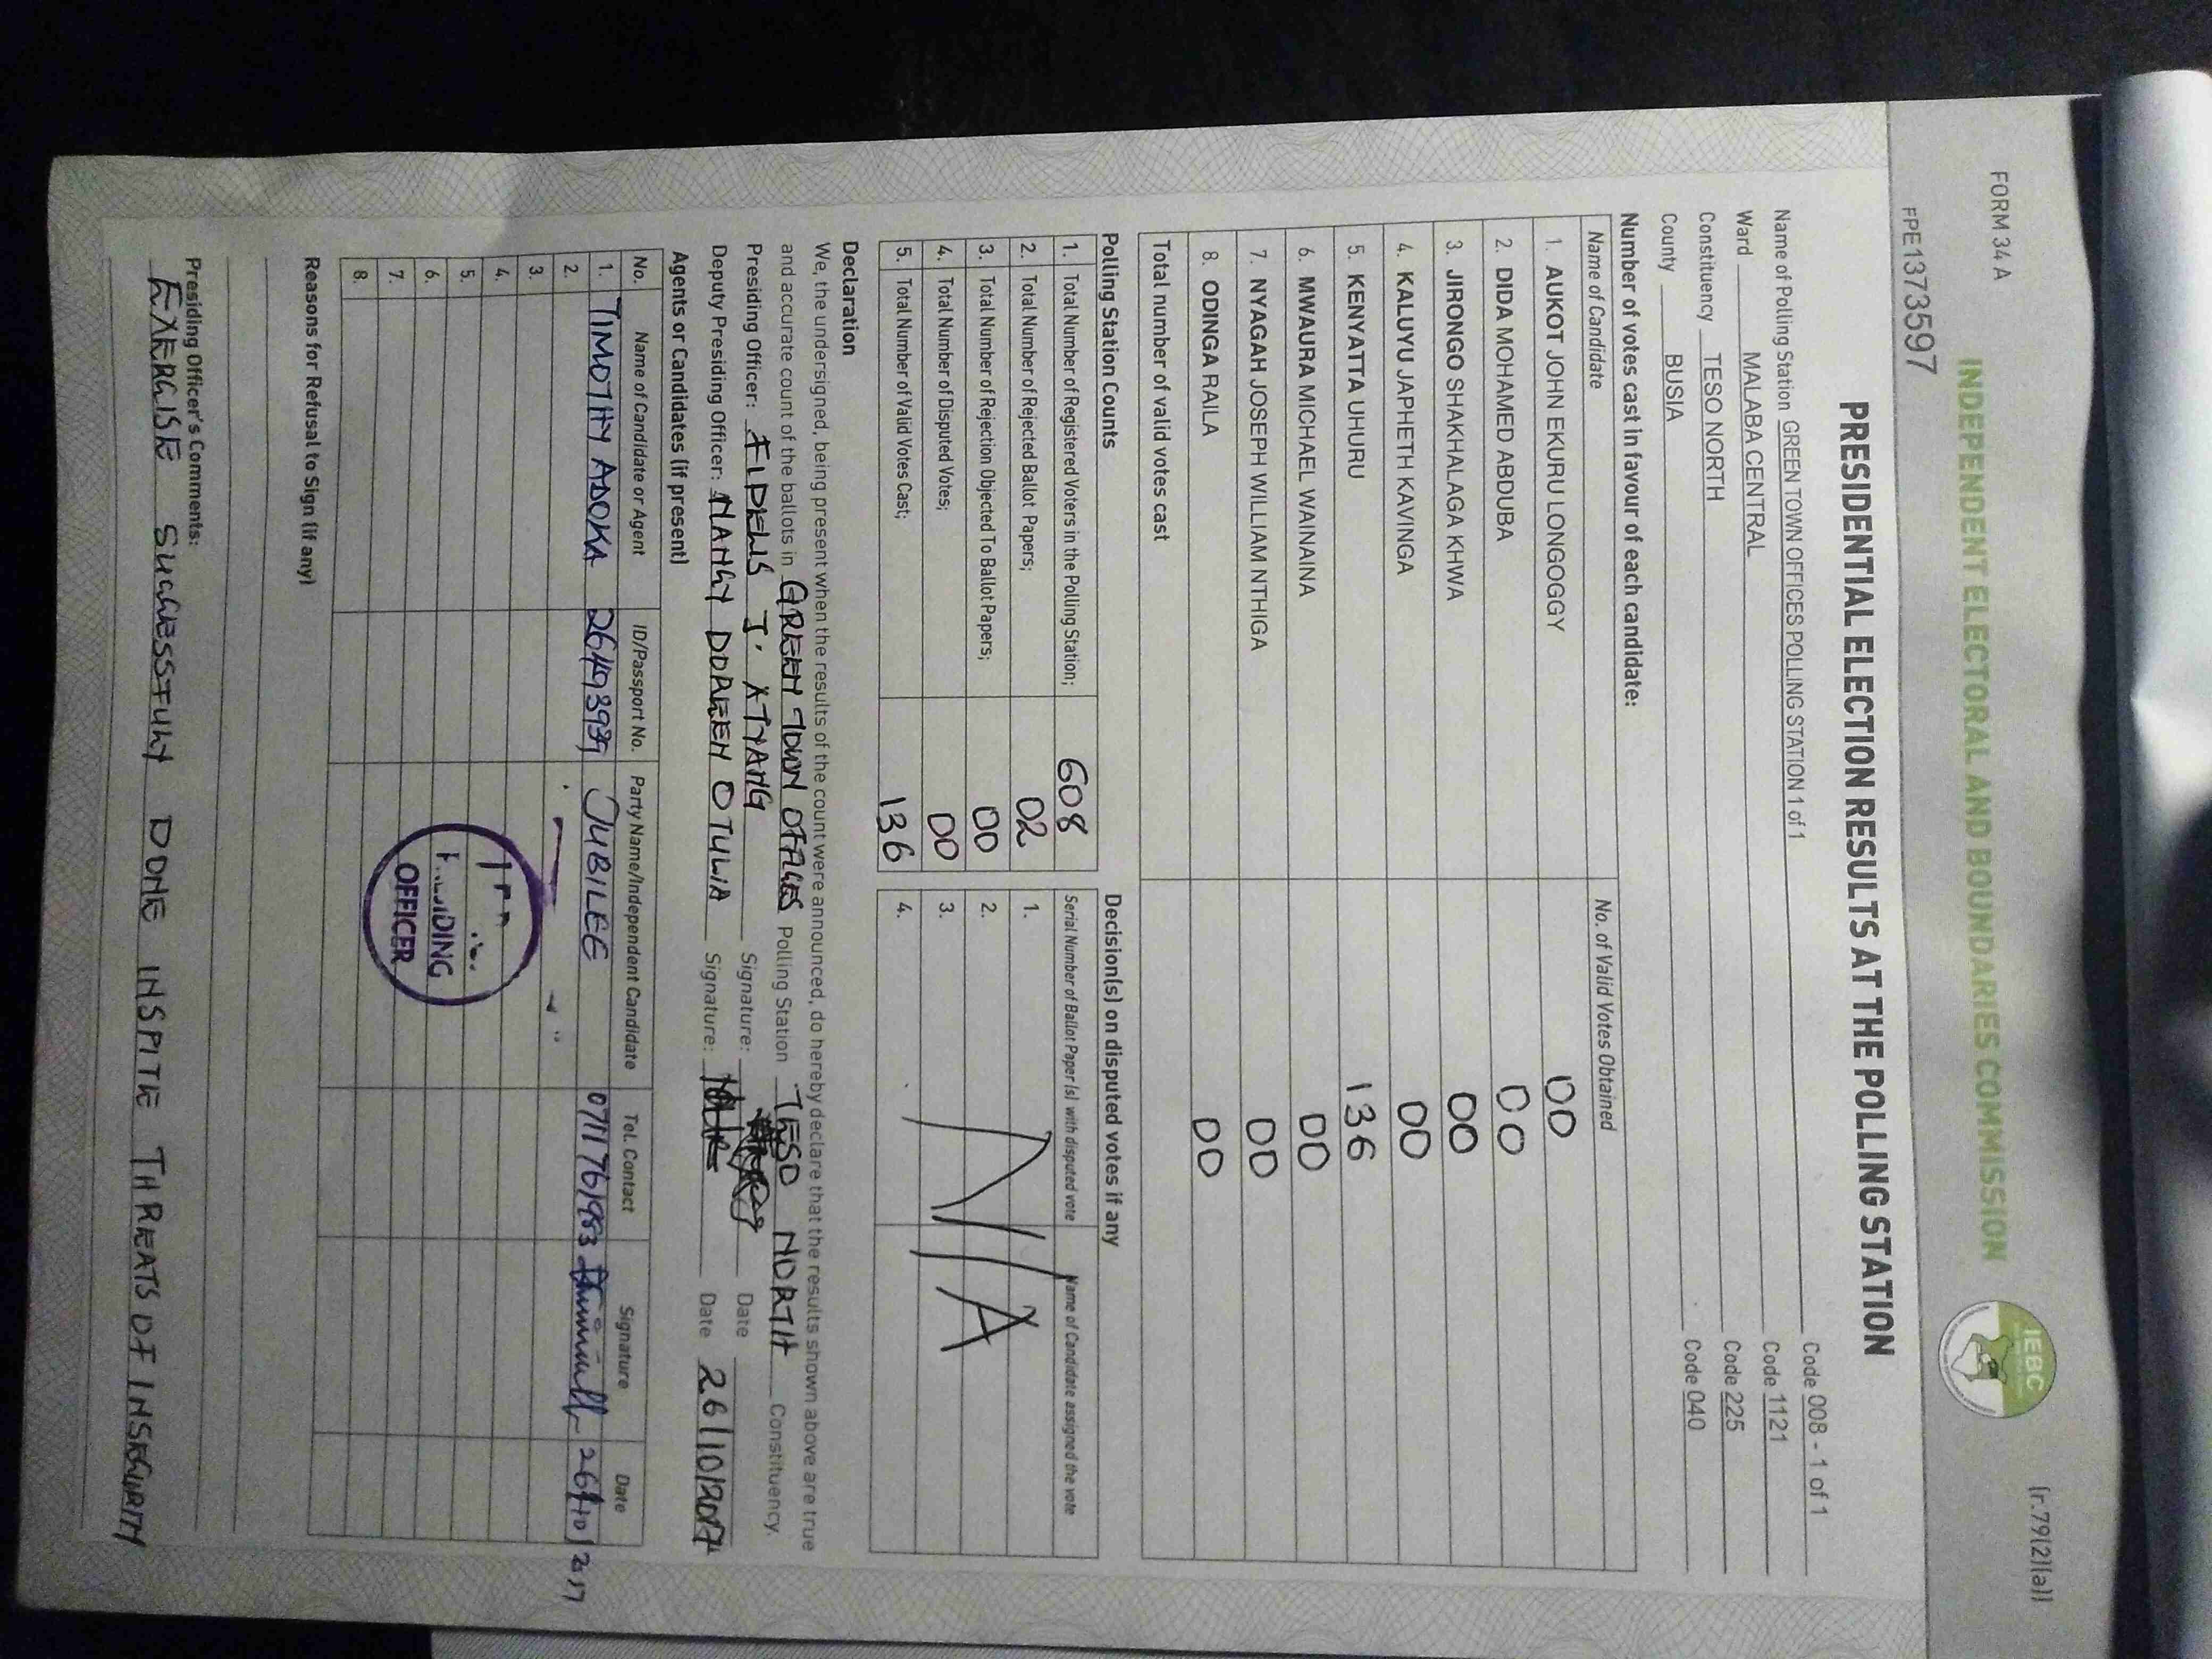 FORM 34 A
(r.79(2)(a))
INDEPENDENT ELECTORAL AND BOUNDARIES COMMISSION
IEBC
FPE1373597
PRESIDENTIAL ELECTION RESULTS AT THE POLLING STATION
Name of Polling Station GREEN TOWN OFFICES POLLING STATION 1 of 1 Code 008 - 1 of 1
Ward MALABA CENTRAL Code 1121
Constituency TESO NORTH Code 225
County BUSIA Code 040
Number of votes cast in favour of each candidate:
Name of Candidate No. of Valid Votes Obtained
1. AUKOT JOHN EKURU LONGOGGY 00
2. DIDA MOHAMED ABDUBA 00
3. JIRONGO SHAKHALAGA KHWA 00
4. KALUYU JAPHETH KAVINGA 00
5. KENYATTA UHURU 136
6. MWAURA MICHAEL WAINAINA 00
7. NYAGAH JOSEPH WILLIAM NTHIGA 00
8. ODINGA RAILA 00
Total number of valid votes cast
Polling Station Counts
1. Total Number of Registered Voters in the Polling Station; 608
2. Total Number of Rejected Ballot Papers; 02
3. Total Number of Rejection Objected To Ballot Papers; 00
4. Total Number of Disputed Votes; 00
5. Total Number of Valid Votes Cast; 136
Decision(s) on disputed votes if any
Serial Number of Ballot Paper (s) with disputed vote Name of Candidate assigned the vote
1.
2.
3.
4.
N/A
Declaration
We, the undersigned, being present when the results of the count were announced, do hereby declare that the results shown above are true
and accurate count of the ballots in GREEN TOWN OFFICES Polling Station TESO NORTH Constituency.
Presiding Officer: FIDELIS I. ATYANG Signature: Date
Deputy Presiding Officer: NANCY DOREEN OTULIA Signature: Date 26/10/2017
Agents or Candidates (if present)
No. Name of Candidate or Agent ID/Passport No. Party Name/Independent Candidate Tel. Contact Signature Date
1. TIMOTHY ADOKA 26493939 JUBILEE 0711761983 26/10/2017
2.
3.
4.
5.
6.
7.
8.
PRESIDING
OFFICER
Reasons for Refusal to Sign (if any)
Presiding Officer's Comments:
EXERCISE SUCCESSFULY DONE INSPITE THREATS OF INSECURITY